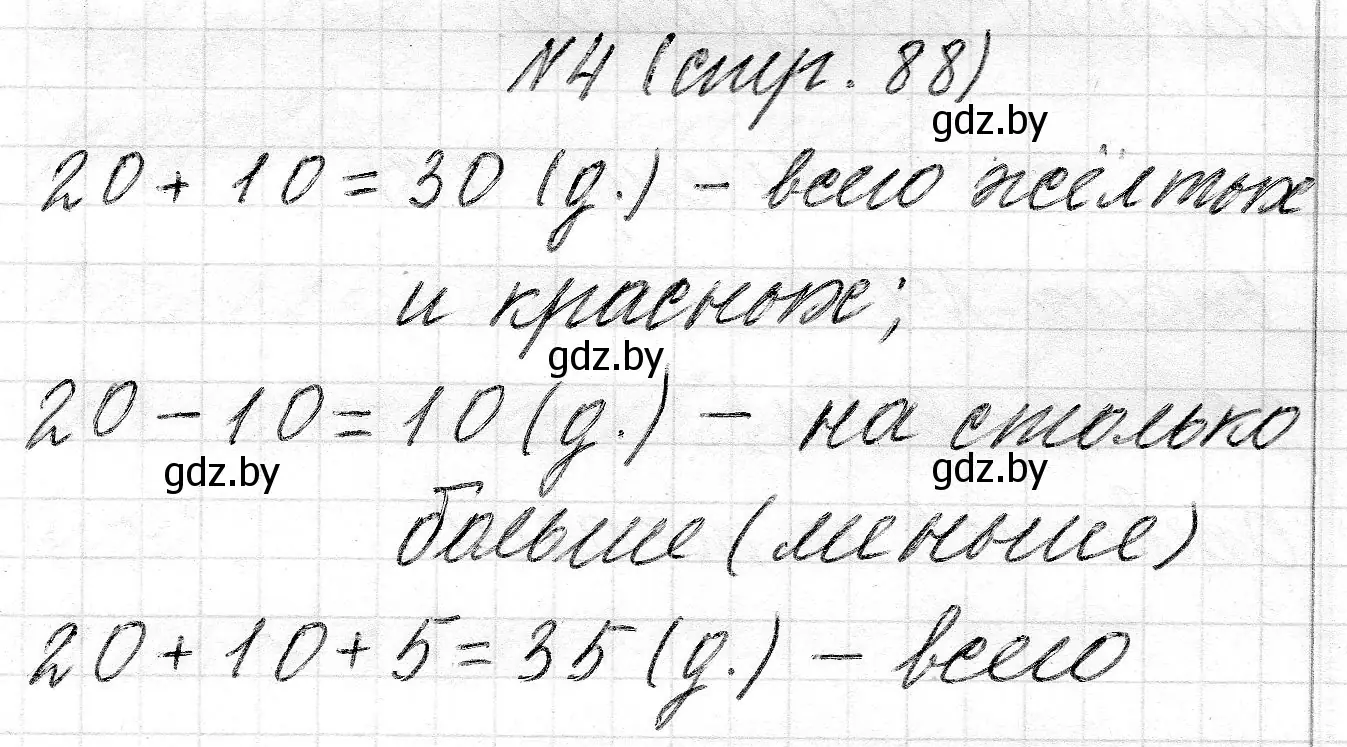 №4 (стр. 88)
gdz.by
20 + 10 = 30 (д.) – всего жёлтых
и красных;
gdz.by
20 – 10 = 10 (д.) – на столько
gdz.by gdz.by
больше (меньше)
20 + 10 + 5 = 35 (д.) – всего